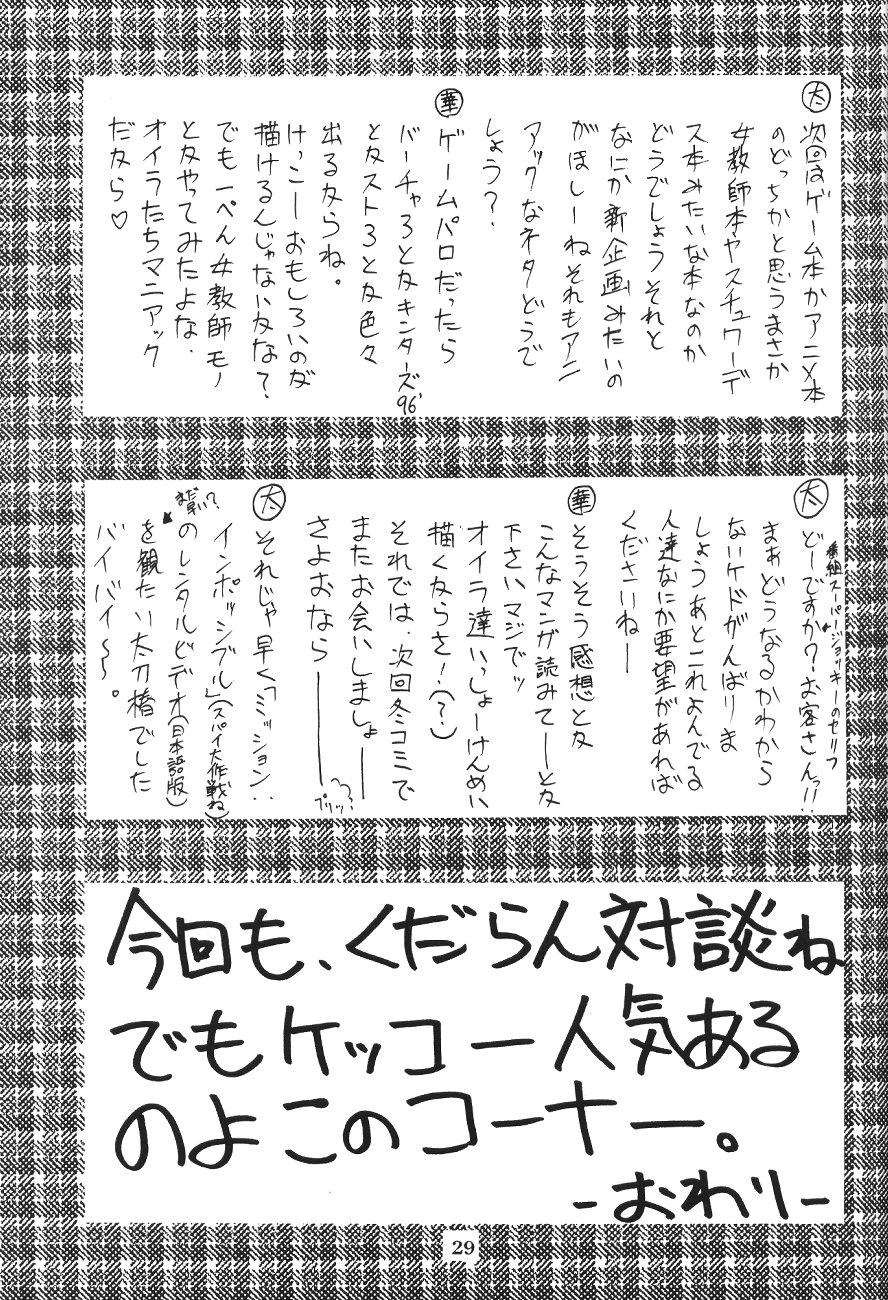 太
次回はゲーム本かアニメ本
のどっちかと思うまさか
女教師本やスチュワーデ
ス本みたいな本なのか
どうでしょうそれと
なにか新企画みたいの
がほしーねそれもアニ
アックなネタどうで
しょう?
華
ゲームパロだったら
バーチャ3と友キンターズ96'
と友スト3と友色々
出る友らね。
けっこーおもしろいのが
描けるんじゃない友な?
でも一ぺん女教師モノ
と友やってみたよな.
オイラたちマニアック
だ友ら♡
太
番組スーパージョッキーのセリフ
どーですか?お客さんっ!!
まぁどうなるかわから
ないケドがんばりま
しょうあとこれよんでる
人達なにか要望があれば
くださいねー
華
そうそう感想と友
こんなマンガ読みてーと友
下さいマジでッ
オイラ達いっしょーけんめい
描く友らさ!(?)
それでは、次回冬コミで
またお会いしましょー
さよおならー
プリッ
太
それじゃ早く「ミッション:
インポッシブル」(スパイ大作戦ね)
のレンタルビデオ(日本語版)
を観たい太刀椿でした
バイバイ〜。
今回も、くだらん対談ね
でもケッコー人気ある
のよこのコーナー。
-おわり-
29